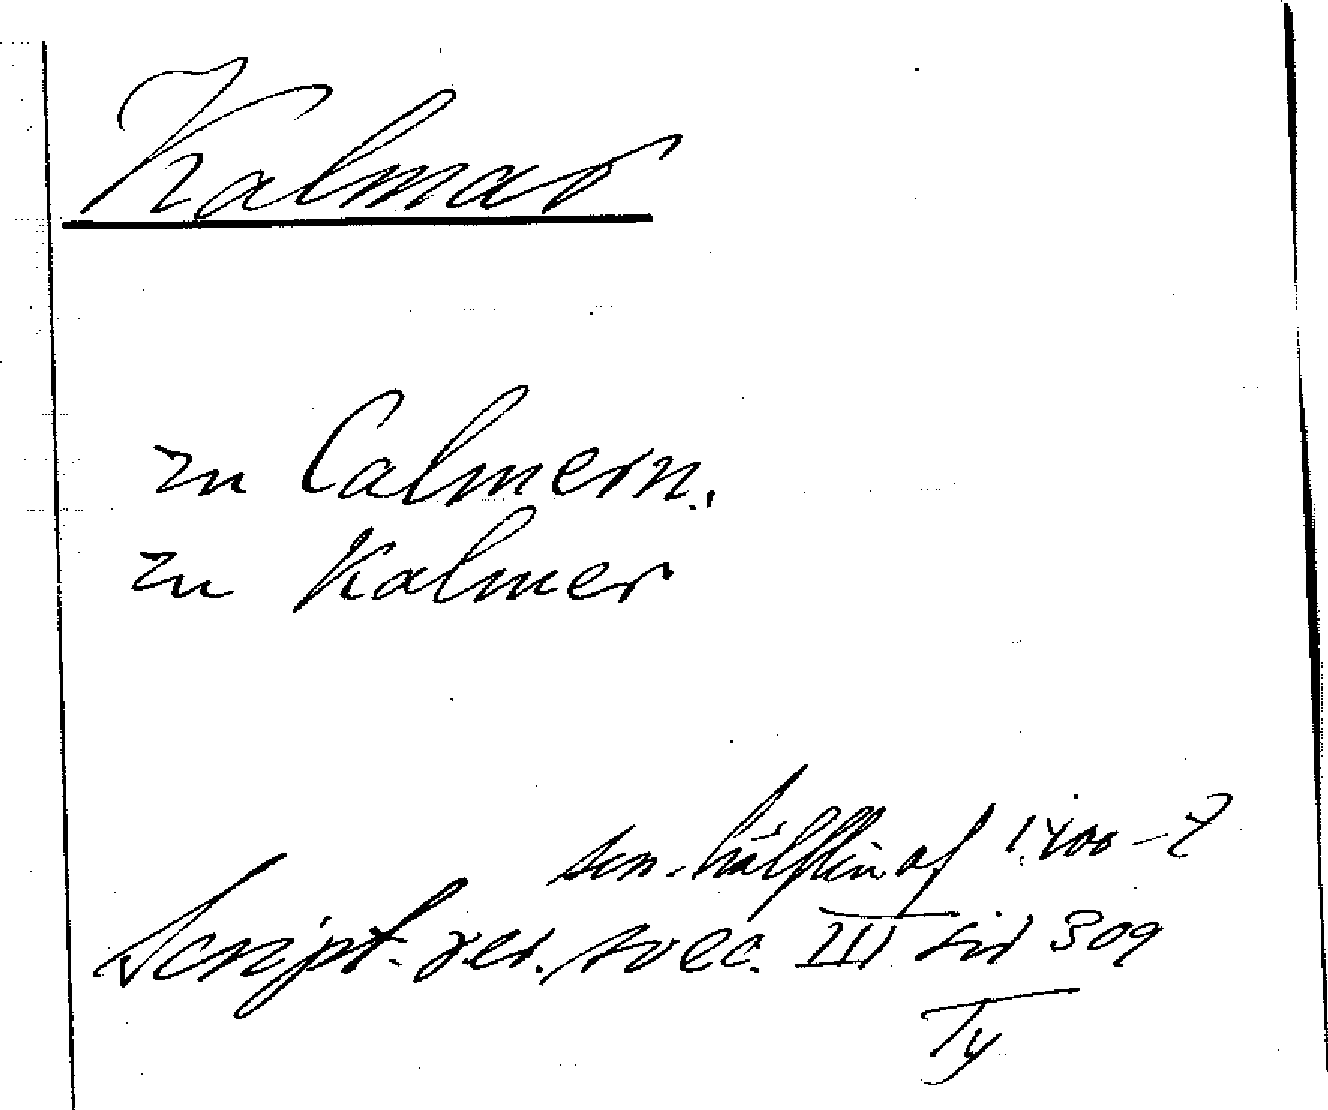 Kalmar
zu Calmern.
zu Kalmer
sen. hälften af 1400-t
Script. rer. svec. III sid 309
Ty